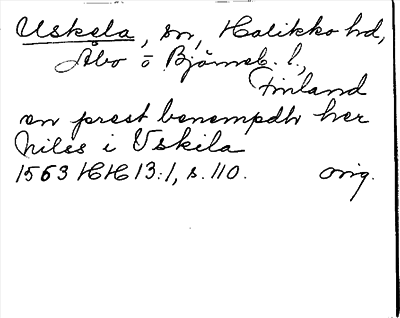 Uskela, sn, Halikko hd,
Åbo o Björneb. l.,
Finland
en prest benempdh her
Nilss i Vskila
1563 HH 13:1, s. 110. orig.